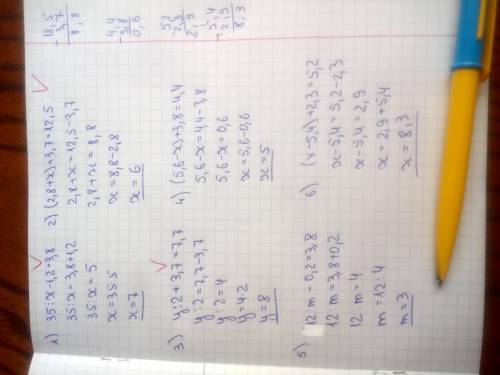 1) 35:x-1,2=3,8
35:x=3,8+1,2
35:x=5
x=35:5
x=7
2) (2,8+x)+3,7=12,5
2,8+x=12,5-3,7
2,8+x=8,8
x=8,8-2,8
x=6
12,5
- 3,7
8,8
3) y:2+3,7=7,7
y:2=7,7-3,7
y:2=4
y=4·2
y=8
4) (5,6-x)+3,8=4,4
5,6-x=4,4-3,8
5,6-x=0,6
x=5,6-0,6
x=5
4,4
-3,8
0,6
5) 12:m-0,2=3,8
12:m=3,8+0,2
12:m=4
m=12:4
m=3
6) (x-5,4)+2,3=5,2
x-5,4=5,2-2,3
x-5,4=2,9
x=2,9+5,4
x=8,3
5,2
-2,3
2,9
5,4
+2,9
8,3